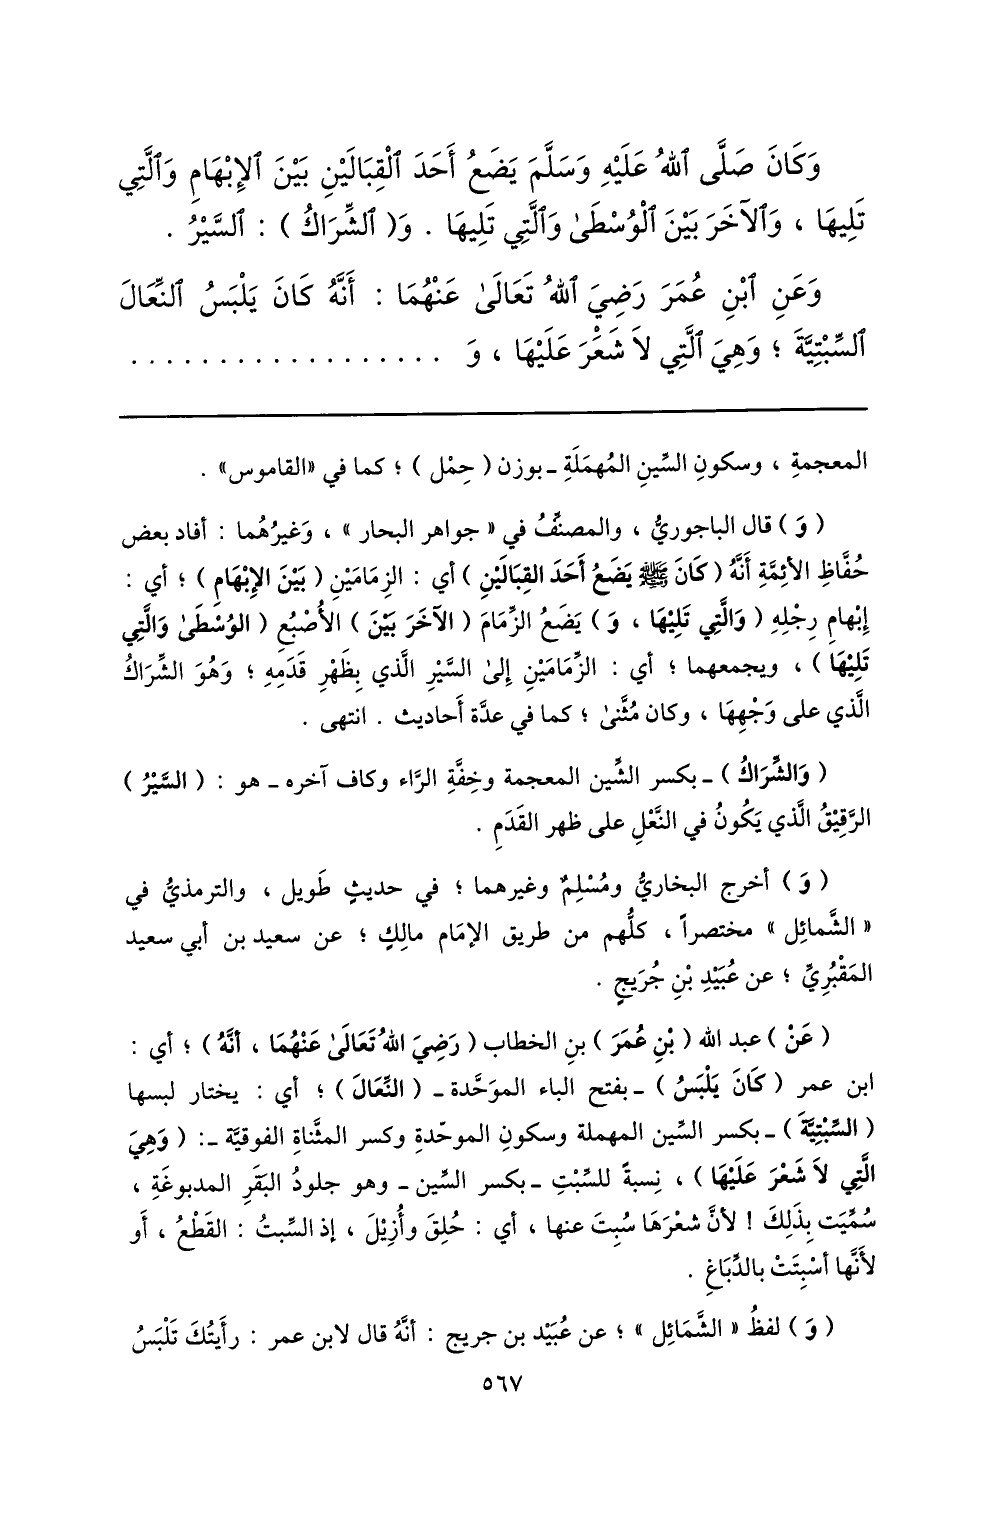 وَكَانَ صَلَّى ٱللهُ عَلَيْهِ وَسَلَّمَ يَضَعُ أَحَدَ ٱلْقِبَالَيْنِ بَيْنَ ٱلإِبْهَامِ وَٱلَّتِي
تَلِيهَا ، وَٱلآخَرَ بَيْنَ ٱلْوُسْطَىٰ وَٱلَّتِي تَلِيهَا . وَ( ٱلشِّرَاكُ ) : ٱلسَّيْرُ .
وَعَنِ ٱبْنِ عُمَرَ رَضِيَ ٱللهُ تَعَالَىٰ عَنْهُمَا : أَنَّهُ كَانَ يَلْبَسُ ٱلنِّعَالَ
ٱلسِّبْتِيَّةَ ؛ وَهِيَ ٱلَّتِي لاَ شَعَْرَ عَلَيْهَا ، وَ . . . . . . . . . . . . . . . . . .
المعجمةِ ، وسكونِ السِّينِ المُهمَلَةِ ـ بوزن ( حِمْل ) ؛ كما في «القاموس» .
( وَ ) قال الباجوريُّ ، والمصنِّفُ في « جواهر البحار » ، وَغيرُهُما : أفاد بعض
حُفَّاظِ الأئِمَّةِ أنَّهُ ( كَانَ ﷺ يَضَعُ أَحَدَ القِبَالَيْنِ ) أي : الزِمَامَيْنِ ( بَيْنَ الإِبْهَامِ ) ؛ أي :
إِبْهامِ رِجْلِهِ ( وَالَّتِي تَلِيْهَا ، وَ ) يَضَعُ الزِّمَامَ ( الآخَرَ بَيْنَ ) الأُصْبُعِ ( الوُسْطَىٰ وَالَّتِي
تَلِيْهَا ) ، ويجمعهما ؛ أي : الزِّمَامَيْنِ إِلىٰ السَّيْرِ الَّذي بِظَهْرِ قَدَمِهِ ؛ وَهُوَ الشِّرَاكُ
الَّذي على وَجْهِهَا ، وكان مُثَنىٰ ؛ كما في عدَّة أَحاديث . انتهى .
( وَالشِّرَاكُ ) ـ بكسر الشِّين المعجمة وخِفَّةِ الرَّاء وكاف آخره ـ هو : ( السَّيْرُ )
الرَّقِيْقُ الَّذي يَكُونُ في النَّعْلِ على ظهر القَدَمِ .
( وَ ) أخرج البخاريُّ ومُسْلِمٌ وغيرهما ؛ في حديثٍ طَويل ، والترمذيُّ في
« الشَّمائِل » مختصراً ، كلُّهم من طريق الإمَام مالِكٍ ؛ عن سعيد بن أبي سعيد
المَقْبُرِيِّ ؛ عن عُبَيْدِ بْنِ جُرَيجٍ .
( عَنْ ) عبد الله ( بْنِ عُمَرَ ) بنِ الخطاب ( رَضِيَ اللهُ تَعَالَىٰ عَنْهُمَا ، أنَّهُ ) ؛ أي :
ابن عمر ( كَانَ يَلْبَسُ ) ـ بفتح الباء الموَحَّدة ـ ( النِّعَالَ ) ؛ أي : يختار لبسها
( السِّبْتِيَّةَ ) ـ بكسر السِّين المهملة وسكونِ الموحّدةِ وكسر المثَّناةِ الفوقيَّة ـ: ( وَهِيَ
الَّتِي لاَ شَعْرَ عَلَيْهَا ) ، نِسبةً للسِّبْتِ ـ بكسر السِّين ـ وهو جلودُ البَقَرِ المدبوغَةِ ،
سُمِّيَت بِذَلِكَ ! لأنَّ شعْرَهَا سُبِتَ عنها ، أي : حُلِقَ وأُزِيْلَ ، إذ السِّبتُ : القَطْعُ ، أَو
لأَنَّها أسْبِتَتْ بالدِّبَاغِ .
( وَ ) لفظُ « الشَّمَائِل » ؛ عن عُبَيْد بن جريج : أنَّهُ قال لابن عمر : رأَيتُكَ تَلْبَسُ
٥٦٧